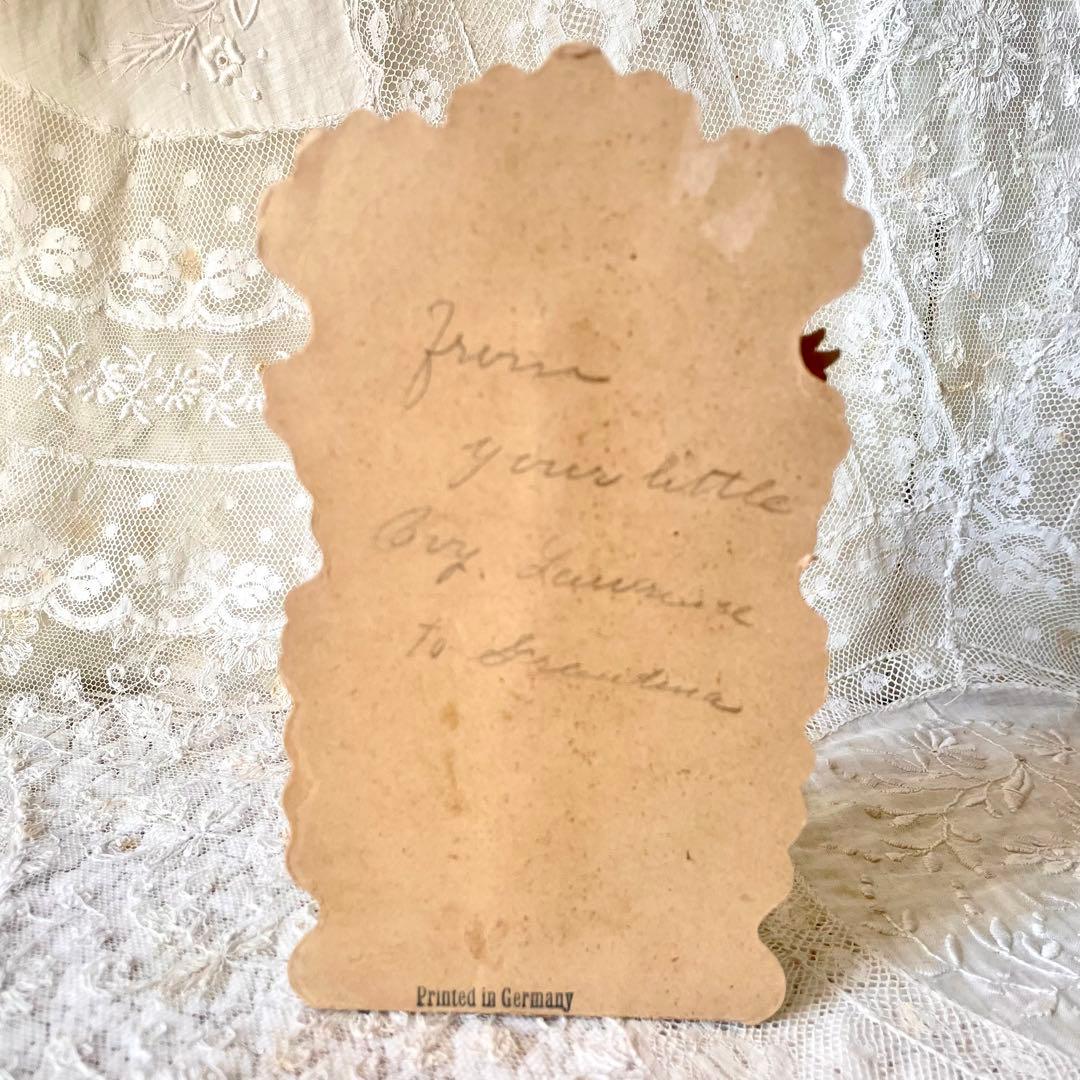 From
your little
Boy. Lawrence
to Grandma
Printed in Germany